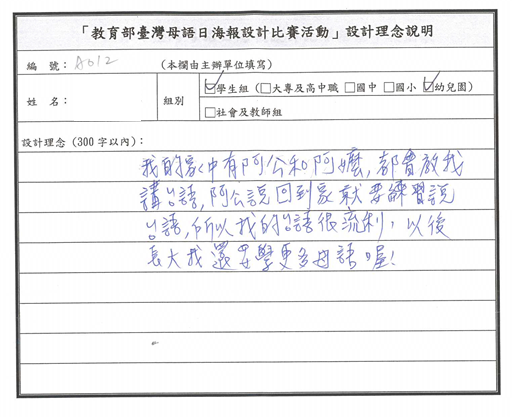 「教育部臺灣母語日海報設計比賽活動」設計理念說明
編 號：A012 （本欄由主辦單位填寫）
姓 名： 組別 ☑學生組（□大專及高中職 □國中 □國小 ☑幼兒園）
□社會及教師組
設計理念（300 字以內）：
我的家中有阿公和阿嬤，都會教我
講台語，阿公說回到家就要練習說
台語，所以我的台語很流利，以後
長大我還要學更多母語喔！